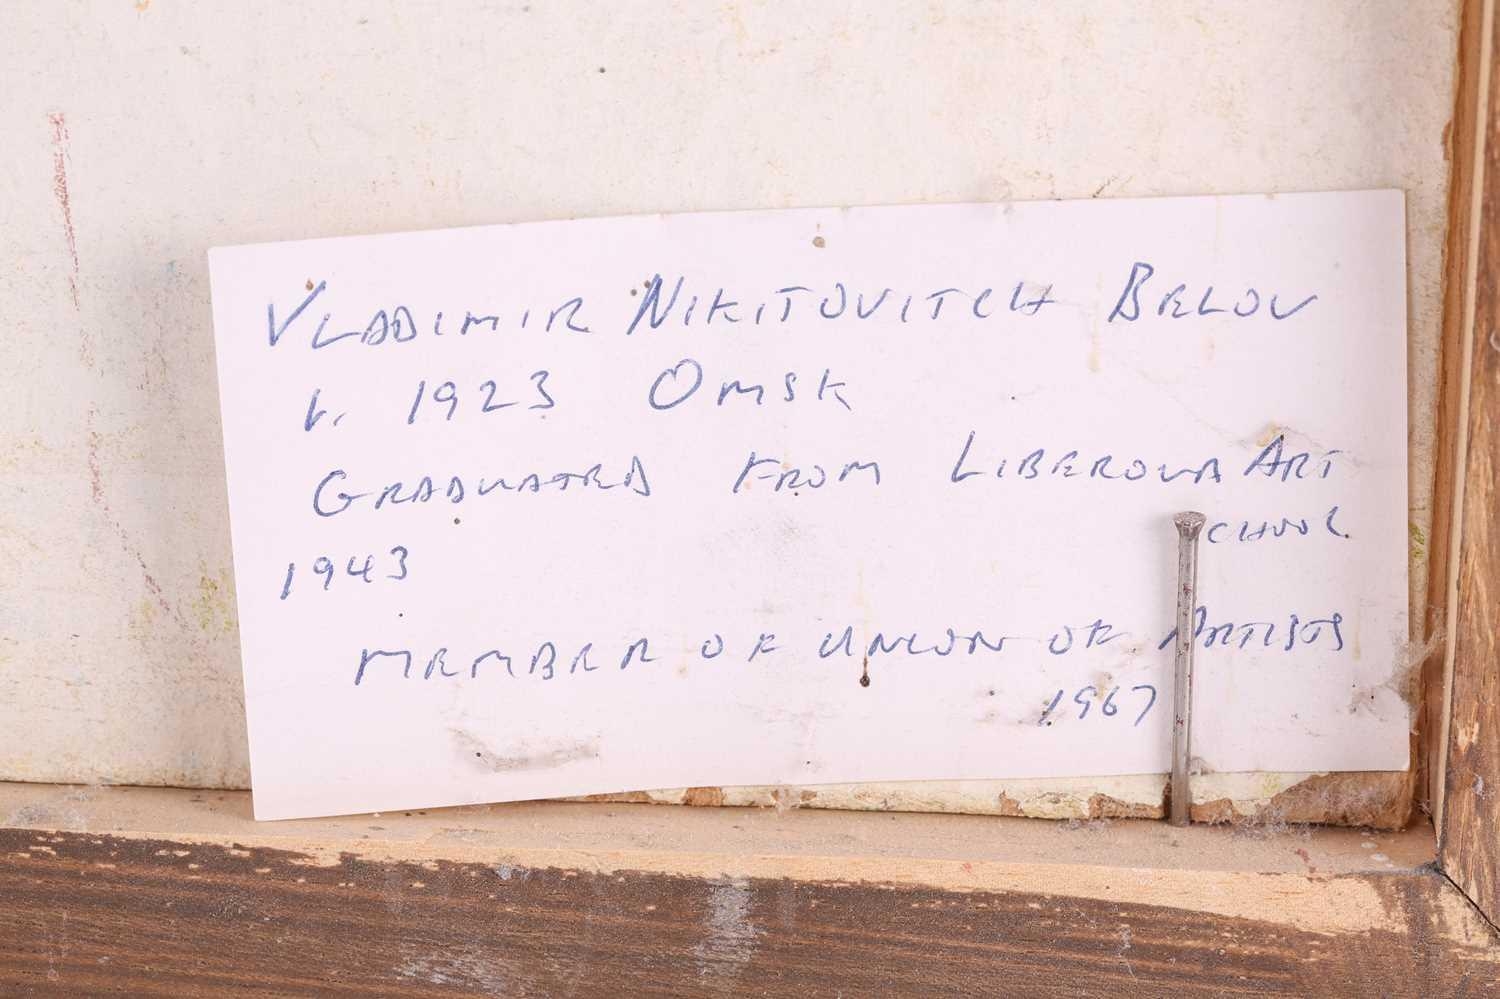 VLADIMIR NIKITOVITCH BELOV
b. 1923 OMSK
GRADUATED FROM LIBEROVA ART
SCHOOL
1943
MEMBER OF UNION OF ARTISTS
1967